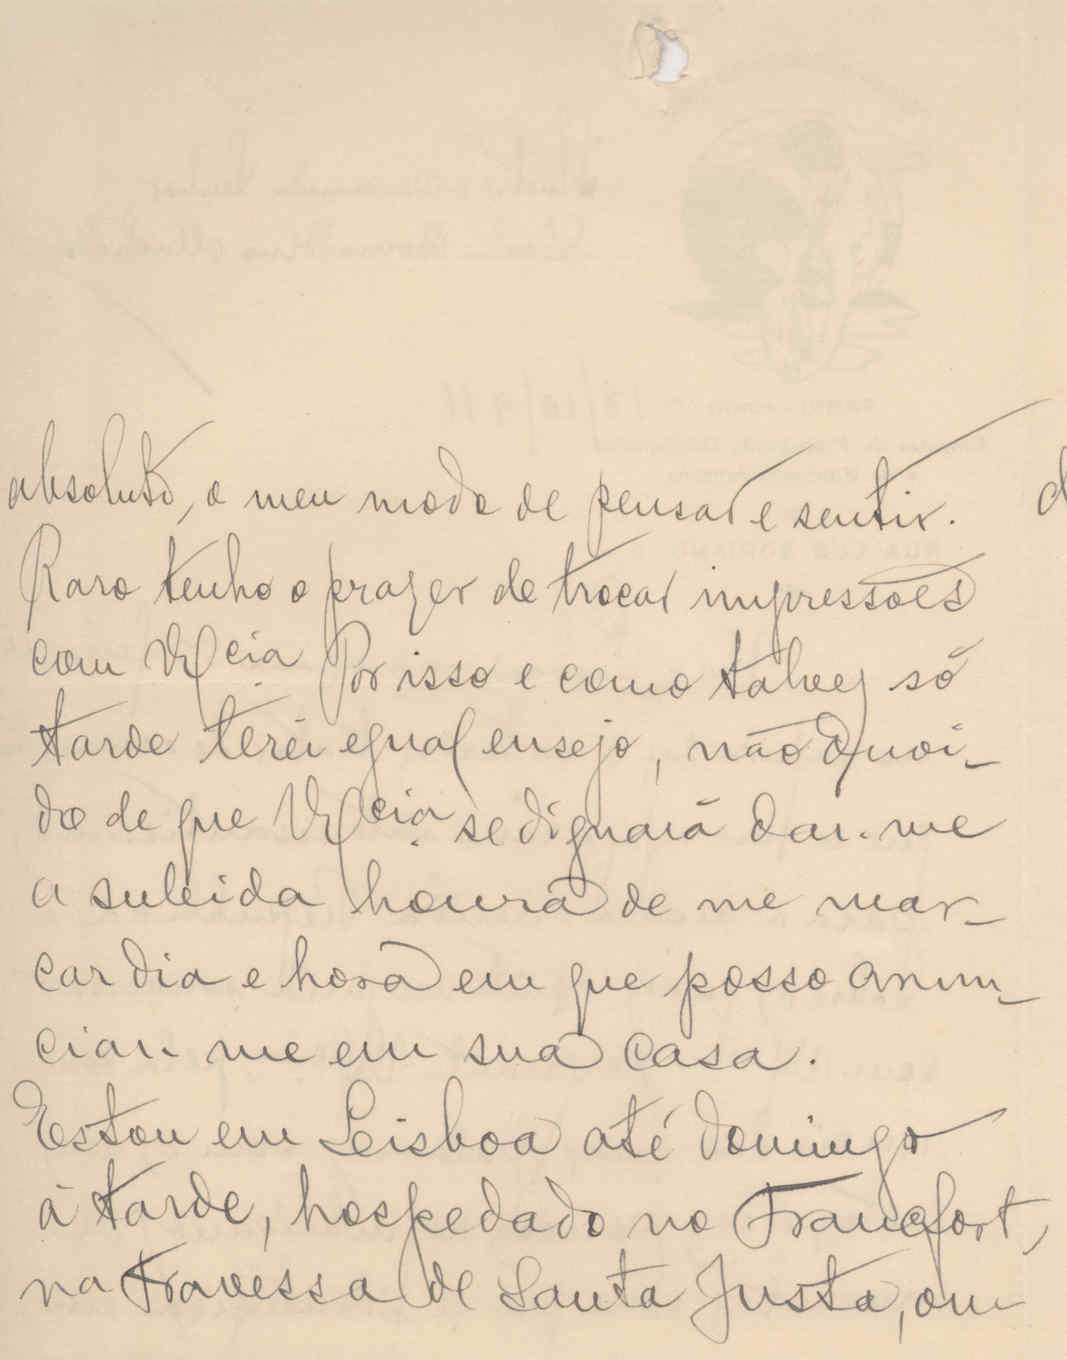 absoluto, o meu modo de pensar e sentir.
Raro tenho o prazer de trocar impressões
com V. Ex.cia. Por isso e como talvez só
tarde terei egual ensejo, não duvi-
do de que V. Ex.cia. se dignará dar-me
a subida honra de me mar-
car dia e hora em que posso anun-
ciar-me em sua casa.
Estou em Lisboa até domingo
á tarde, hospedado no Francfort,
na travessa de Santa Justa, ou